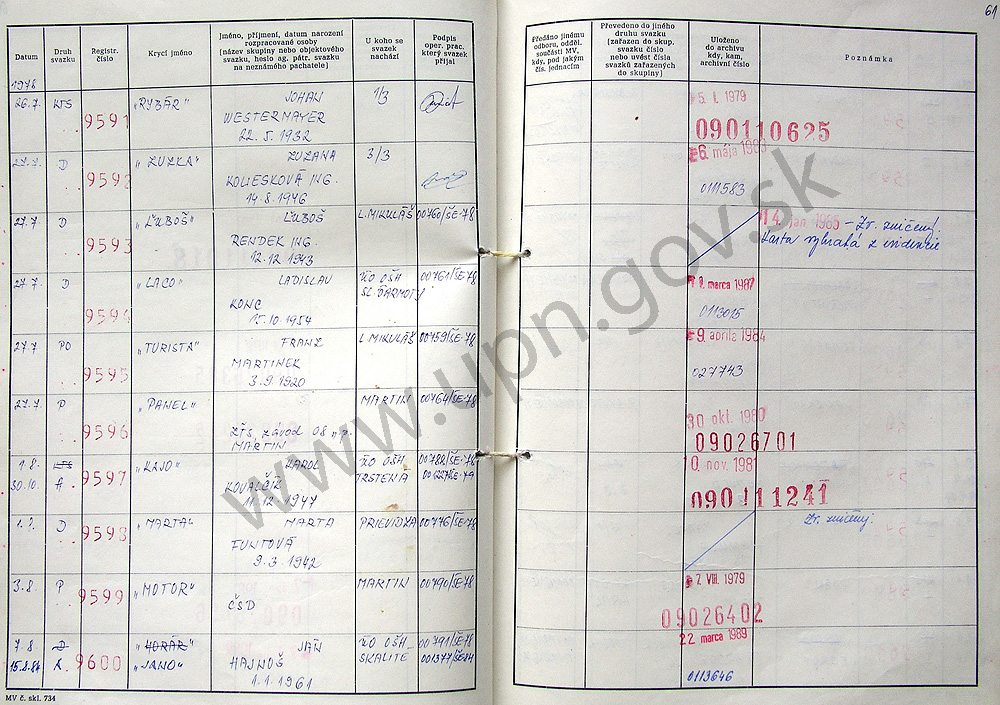 61
Datum
Druh svazku
Registr. číslo
Krycí jméno
Jméno, příjmení, datum narození
rozpracované osoby
(název skupiny nebo objektového
svazku, heslo ag. pátr. svazku
na neznámého pachatele)
U koho se
svazek
nachází
Podpis
oper. prac.
který svazek
přijal
Předáno jinému
odboru, odděl.
součásti MV,
kdy, pod jakým
čís. jednacím
Převedeno do jiného
druhu svazku
(zařazen do skup.
svazku číslo
nebo uvést čísla
svazků zařazených
do skupiny)
Uloženo
do archivu
kdy, kam,
archivní číslo
Poznámka
1978
26.7. KTS 9591 "RYBÁR" JOHAN 1/3
WESTERMAYER
22. 5. 1932
5. I. 1979
090110625
27.7. D 9592 "ZUZKA" ZUZANA 3/3
KOLIESKOVÁ ING.
14.8.1946
6. mája
0111583
27.7 D 9593 "ĽUBOŠ" ĽUBOŠ L.MIKULÁŠ 00760/ŠE-78
RENDEK ING.
12.12.1943
14. jan. 1985 – Zv. zničený.
Karta vybratá z evidencie
27.7. D 9594 "LACO" LADISLAV OO OŠH 00761/ŠE-78
KONC SL. ĎARMOTY
15.10.1954
marca 1987
0113015
27.7 PO 9595 "TURISTA" FRANZ L MIKULÁŠ 00759/ŠE-78
MARTINEK
3.9.1920
9. apríla 1984
027743
27.7. P 9596 "PANEL" MARTIN 00764/ŠE-78
ZŤS, závod 08
MARTIN
30 okt. 1980
09026701
1.8. KTS 9597 "KAJO" KAROL OO OŠH 00782/ŠE-78
30.10. A KOVALČÍK TRSTENÁ
11.12.1947
10. nov. 1981
090111241
D 9598 "MARTA" MARTA PRIEVIDZA 00776/ŠE-78
FUNTOVÁ
9.3.1942
Zv. zničený.
3.8 P 9599 "MOTOR" MARTIN 00790/ŠE-78
ČSD
7. VIII. 1979
09026402
7.8 D 9600 "HORÁR" JÁN OO OŠH 00791/ŠE-78
15.8.84 A "JANO" HAJNOŠ SKALITÉ 001377/ŠE-84
1.1.1961
22 marca 1989
0113646
MV č. skl. 734
www.upn.gov.sk